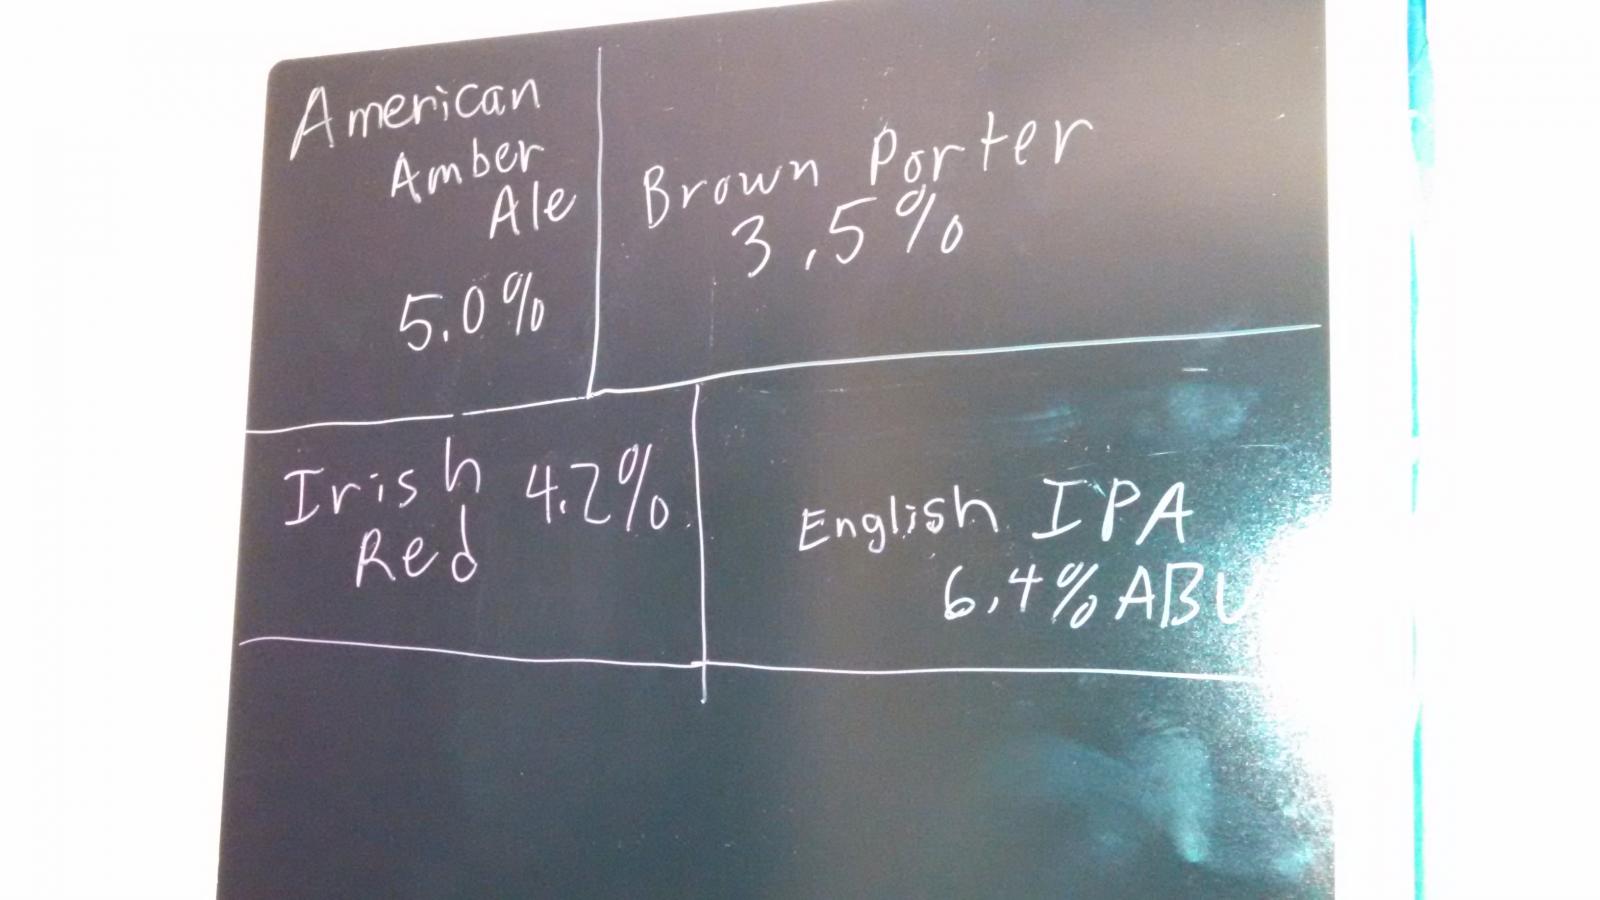 American
Amber
Ale
5.0%
Brown Porter
3.5%
Irish 4.2%
Red
English IPA
6.4% ABV